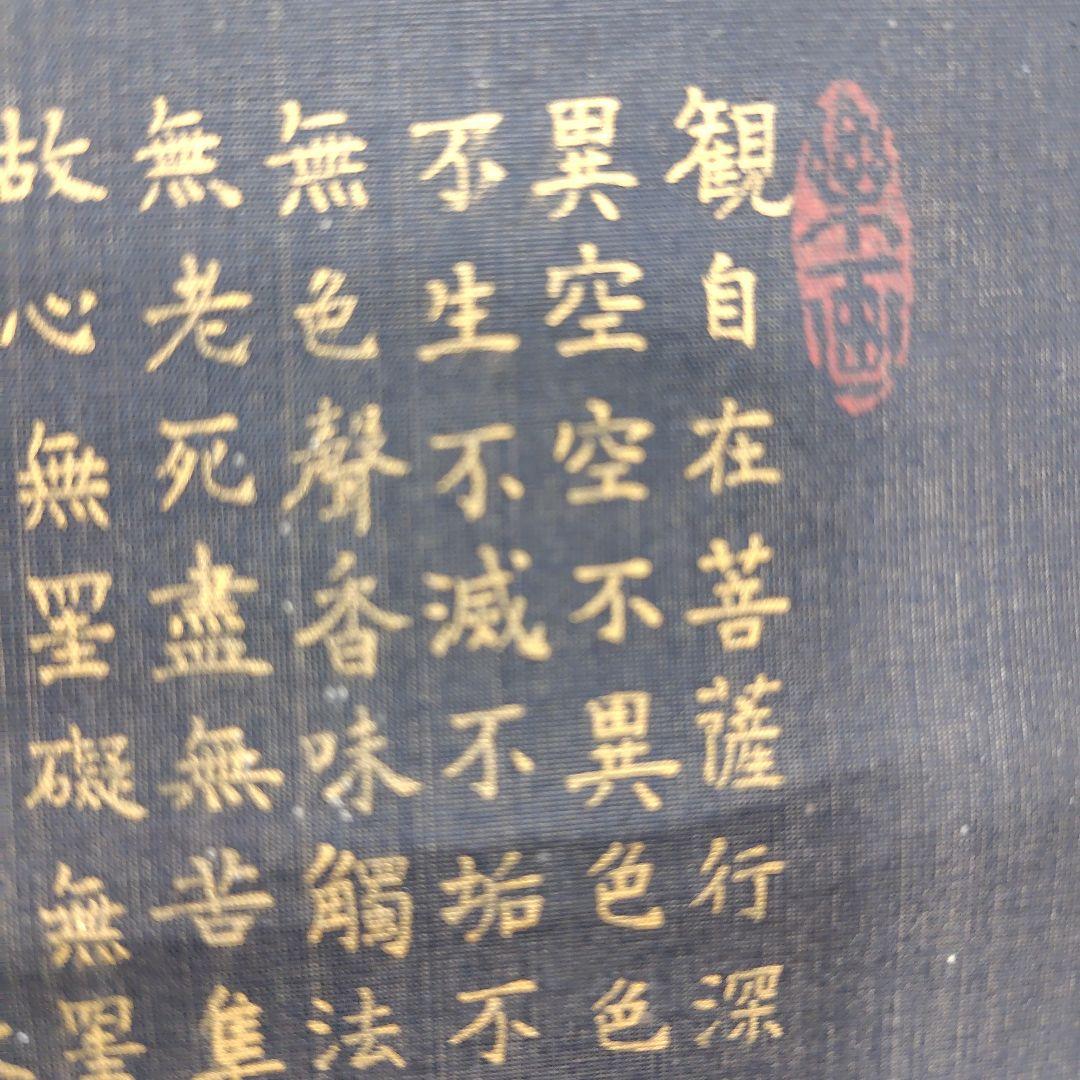 観自在菩薩行深
異空空不異色色
不生不滅不垢不
無色聲香味觸法
無老死盡無苦集
故心無罣礙無罣